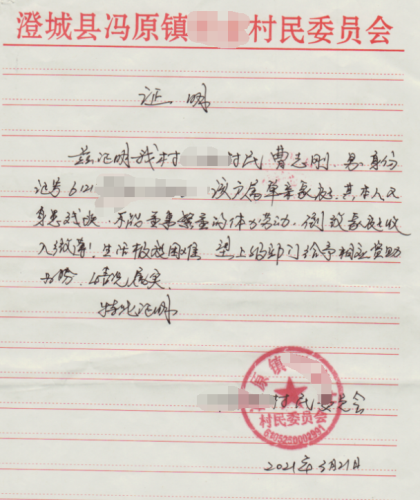 澄城县冯原镇 村民委员会
证明
兹证明我村 村民曹志刚，男，身份
证号6121 ，该户属单亲家庭，其本人又
身患残疾，不能重的体力劳动，倒致家庭收
入微薄，生活极度困难，望上级部门给予相应资助
为盼，情况属实。
特此证明
原镇
村民委员会
村民委员会
2021年3月21日